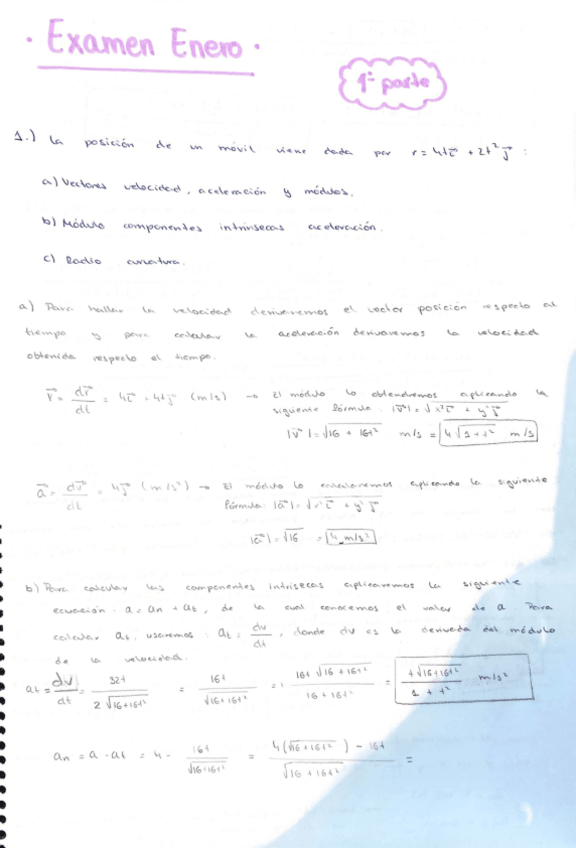 · Examen Enero ·
1ª parte
1.) La posición de un móvil viene dada por r = 4t i⃗ + 2t² j⃗ :
a) Vectores velocidad, aceleración y módulos.
b) Módulo componentes intrínsecas aceleración.
c) Radio curvatura.
a) Para hallar la velocidad derivaremos el vector posición respecto al
tiempo y para calcular la aceleración derivaremos la velocidad
obtenida respecto el tiempo.
= dr⃗/dt = 4i⃗ + 4tj⃗ (m/s) → El módulo lo obtendremos aplicando la
siguiente fórmula: |v⃗| = √x²i⃗ + y²j⃗
|v⃗| = √16 + 16t² m/s = 4√1+t² m/s
a⃗ = dv⃗/dt = 4j⃗ (m/s²) → El módulo lo calcularemos aplicando la siguiente
fórmula: |a⃗| = √x²i⃗ + y²j⃗
|a⃗| = √16 = 4 m/s²
b) Para calcular las componentes intrísecas aplicaremos la siguiente
ecuación: a = an + at, de la cual conocemos el valor de a. Para
calcular at, usaremos: at = dv/dt, donde dv es la derivada del módulo
de la velocidad.
at = dv/dt = 32t / 2√16+16t² = 16t / √16+16t² = 16t √16+16t² / 16+16t² = t√16+16t² / 1+t² m/s²
an = a - at = 4 - 16t / √16+16t² = 4(√16+16t²) - 16t / √16+16t² =